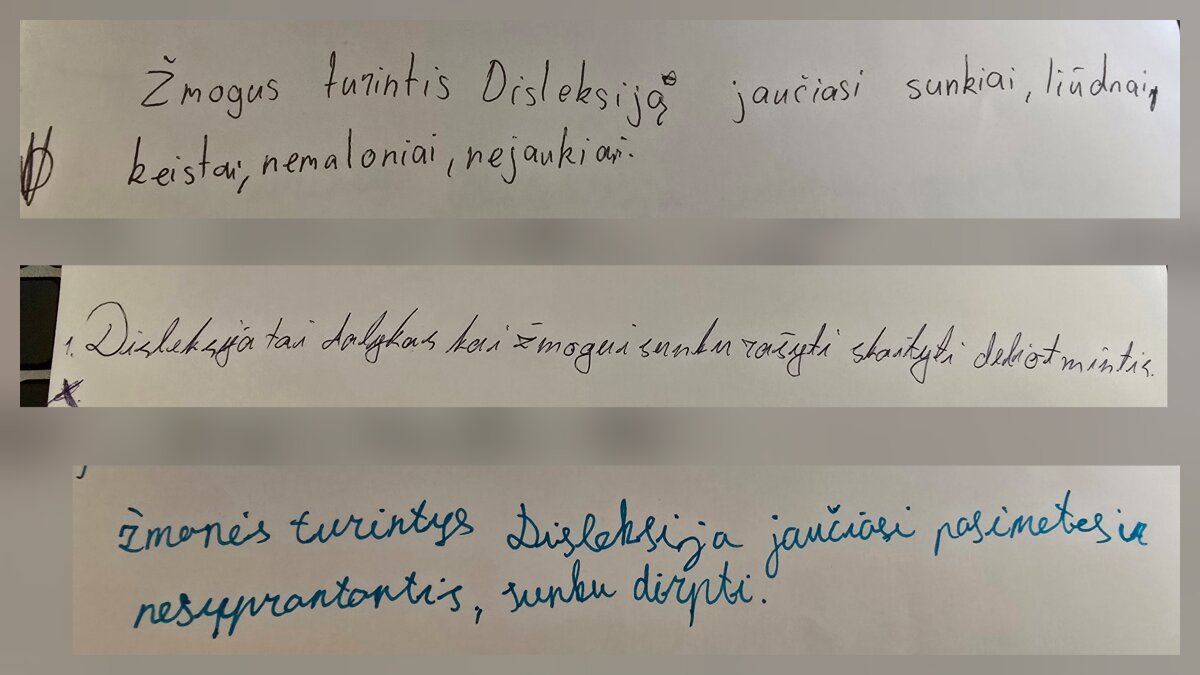 Žmogus turintis Disleksiją jaučiasi sunkiai, liūdnai,
keistai, nemaloniai, nejaukiai.
1. Disleksija tai dalykas kai žmogui sunku rašyti skaityti dekiotmintis.
žmonės turintys Disleksija jaučiasi pasimetes ir
nesuprantantis, sunku dirpti.